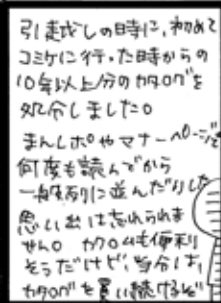 引っ越しの時に、初めて
コミケに行った時からの
10年以上分のカタログを
処分しました。
まんレポやマナーページを
何度も読んでから
一般列に並んだりした
思い出は忘れられま
せん。カタロムも便利
そうだけど、当分は、
カタログを買い続けるぞ!